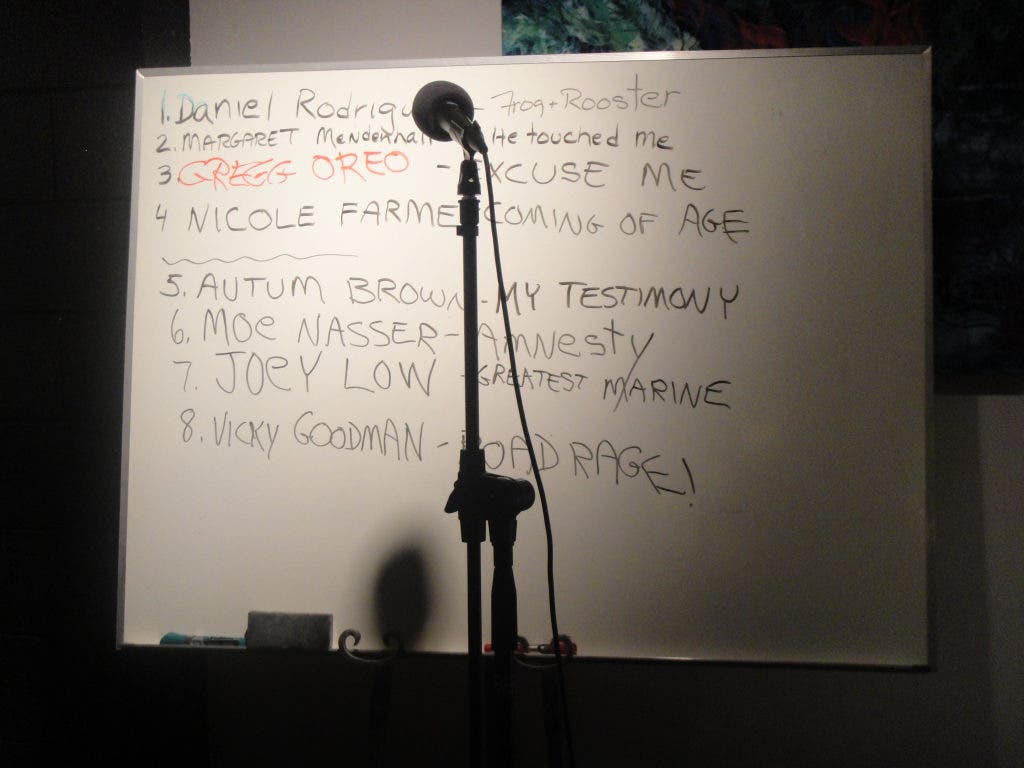 1. Daniel Rodrigu - Frog + Rooster
2. MARGARET He touched me
3 GREGG OREO - EXCUSE ME
4 NICOLE FARME COMING OF AGE
5. AUTUM BROWN - MY TESTIMONY
6. MOe NASSER - Amnesty
7. JOEY LOW - GREATEST MARINE
8. VICKY GOODMAN - ROAD RAGE!